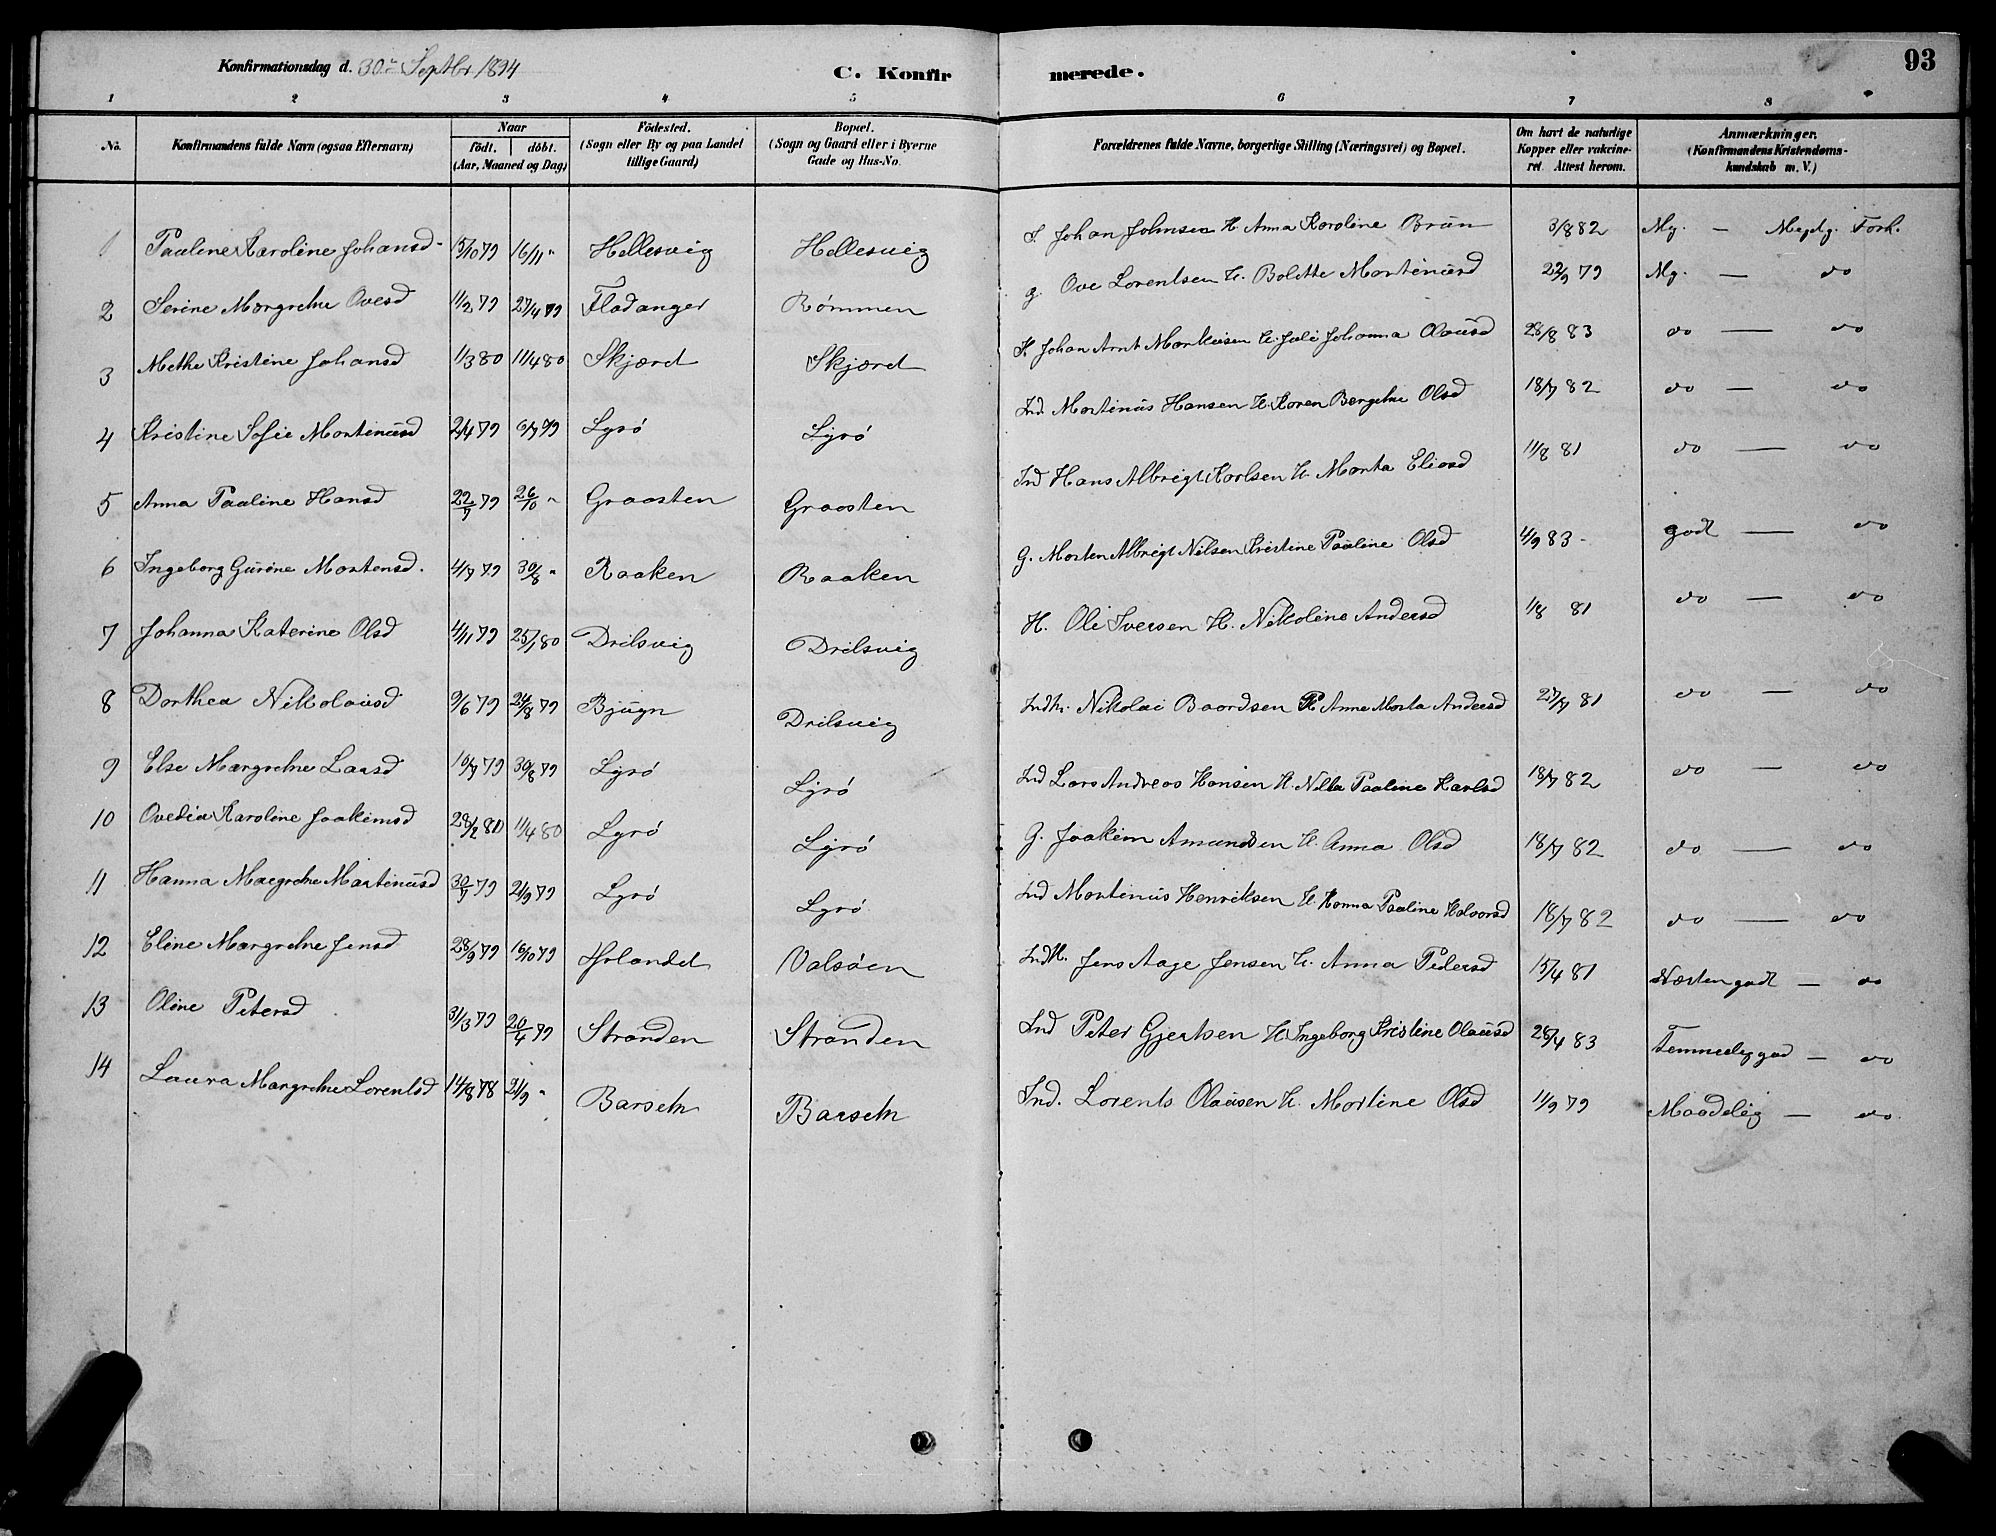 Konfirmationsdag d. 30te Septbr 1894
C. Konfir merede.
93
1 2 3 4 5 6 7 8
No.
Konfirmandens fulde Navn (ogsaa Efternavn)
Naar
født. døbt.
(Aar, Maaned og Dag)
Fødested.
(Sogn eller By og paa Landet
tillige Gaard)
Bopæl.
(Sogn og Gaard eller i Byerne
Gade og Hus-No.
Forældrenes fulde Navne, borgerlige Stilling (Næringsvei) og Bopæl.
Om havt de naturlige
Kopper eller vakcine-
ret. Attest herom.
Anmærkninger.
(Konfirmandens Kristendoms-
kundskab m. V.)
1 Pauline Karoline Johansd 15/10 79 16/11 " Hellesvig Hellesvig S. Johan Johnsen H. Anna Karoline Brun 3/8 82 Mg. — Megdg. Forh.
2 Serine Margrethe Ovesd 11/2 79 27/4 79 Fladanger Rømmen g. Ove Lorentsen H. Bolette Martinusd 22/9 79 Mg. — do
3 Methe Kristine Johansd 1/3 80 11/4 80 Skjærd Skjærd S. Johan Arnt Markusen H. Juli Johanna Olausd 28/8 83 do — do
4 Kristine Sofie Martinusd 2/4 79 6/7 79 Lyrø Lyrø Ind. Martinus Hansen H. Karen Bergithe Olsd 18/7 82 do — do
5 Anna Pauline Hansd 22/7 79 26/10 " Graasten Graasten Ind Hans Albrigt Karlsen H. Marta Eliasd 11/8 81 do — do
6 Ingeborg Gurine Mortensd. 4/7 79 30/8 " Raaken Raaken G. Morten Albrigt Nilsen Kristine Pauline Olsd 4/9 83 - godt — do
7 Johanna Katerine Olsd 4/11 79 25/1 80 Drilsvig Drilsvig H. Ole Iversen H. Nikoline Andersd 1/8 81 do — do
8 Dorthea Nikolaisd 9/6 79 24/8 79 Bjugn Drilsvig Indh. Nikolai Baardsen H. Anne Marta Andersd 27/7 81 do — do
9 Else Margrethe Larsd 10/7 79 30/8 79 Lyrø Lyrø Ind Lars Andreas Hansen H. Nella Pauline Karlsd 18/7 82 do — do
10 Ovedia Karoline Joakimsd 28/2 80 11/4 80 Lyrø Lyrø G. Joakim Amundsen H. Anna Olsd 18/7 82 do — do
11 Hanna Margrethe Martinusd 30/7 79 21/9 79 Lyrø Lyrø Ind Martinus Henriksen H. Hanna Pauline Halvorsd 18/7 82 do — do
12 Eline Margrethe Jensd 28/9 79 16/10 79 Ørlandet Valsøen IndH. Jens Aage Jensen H. Anna Pedersd 15/4 81 Næsten godt — do
13 Oline Petersd 31/3 79 20/4 79 Stranden Stranden Ind Peter Gjertsen H. Ingeborg Kristine Olausd 28/4 83 Temmelig god — do
14 Laura Margrethe Lorentsd 14/8 78 21/9 " Barseth Barseth Ind. Lorents Olausen H. Martine Olsd 11/9 79 Maadelig — do